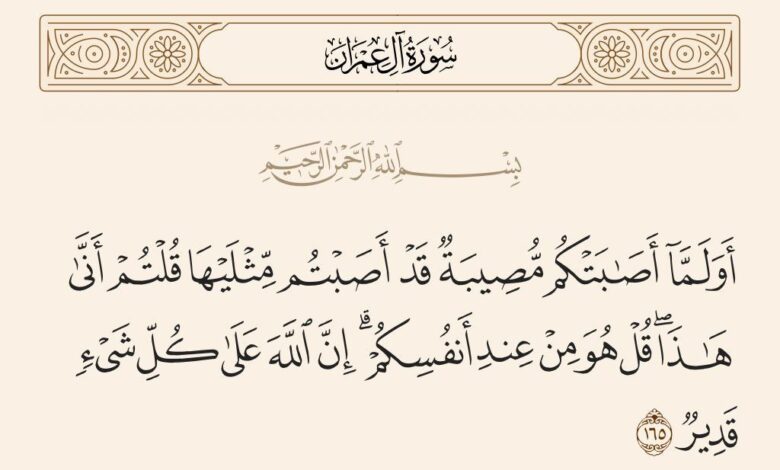 سُورَةُ آلِ عِمۡرَانَ
بِسۡمِ ٱللَّهِ ٱلرَّحۡمَٰنِ ٱلرَّحِيمِ
أَوَلَمَّآ أَصَٰبَتۡكُم مُّصِيبَةٞ قَدۡ أَصَبۡتُم مِّثۡلَيۡهَا قُلۡتُمۡ أَنَّىٰ
هَٰذَاۖ قُلۡ هُوَ مِنۡ عِندِ أَنفُسِكُمۡۗ إِنَّ ٱللَّهَ عَلَىٰ كُلِّ شَيۡءٖ
قَدِيرٞ ١٦٥